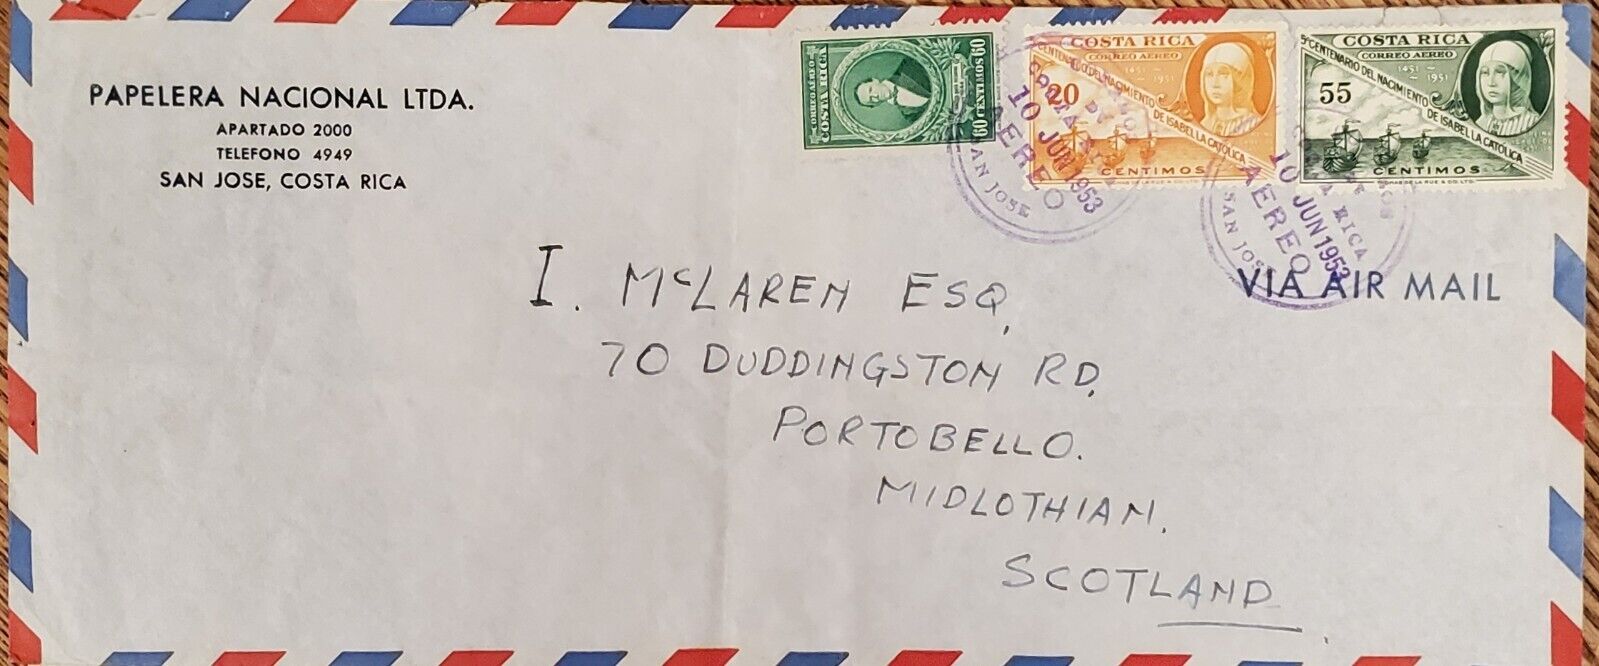 PAPELERA NACIONAL LTDA.
APARTADO 2000
TELEFONO 4949
SAN JOSE, COSTA RICA
CORREO AEREO
COSTA RICA
60 CENTIMOS 60
COSTA RICA
CORREO AEREO
1451 - 1951
5º CENTENARIO DEL NACIMIENTO DE ISABEL LA CATOLICA
20
CENTIMOS
COSTA RICA
CORREO AEREO
1451 - 1951
5º CENTENARIO DEL NACIMIENTO DE ISABEL LA CATOLICA
55
CENTIMOS
THOMAS DE LA RUE & CO. LTD.
10 JUN 1953
AEREO
SAN JOSE
RICA
10 JUN 1953
AEREO
SAN JOSE
VIA AIR MAIL
I. McLAREN ESQ,
70 DUDDINGSTON RD,
PORTOBELLO.
MIDLOTHIAN.
SCOTLAND.